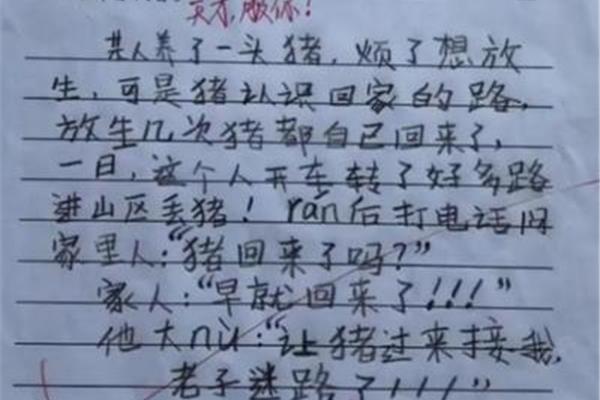 英才,服你!
某人养了一头猪,烦了想放
生,可是猪认识回家的路,
放生几次猪都自己回来了,
一日,这个人开车转了好多路
进山区丢猪! rán后打电话问
家里人:“猪回来了吗?”
家人:“早就回来了!!!”
他大nù:“让猪过来接我,
老子迷路了!!!”